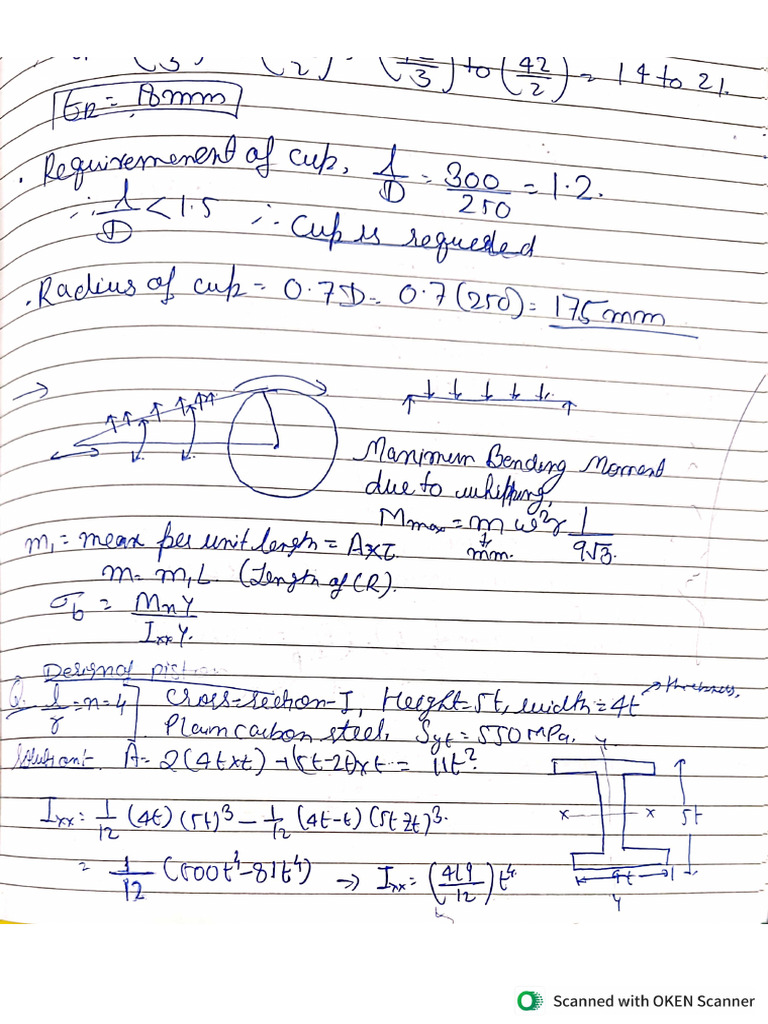 (3) (2) (42/3) to (42/2) = 14 to 21.
tR = 18mm
. Requiremenent of cup, l/D = 300/250 = 1.2.
∴ l/D < 1.5 ∴ Cup is requeded
. Radius of cup = 0.7D = 0.7 (250) = 175mm
→
Manimum Bending Moment
due to whipping,
Mmax = m ω²r l/9√3.
m₁ = mean per unit length = A×τ. mm.
m = m₁L. (Length of CR).
σb = MnY / Ixx Y.
Design of pist
Q. l/r = n = 4] Cross-section - I, Height = 5t, width = 4t → thickness,
Plain carbon steel, Syt = 550 MPa.
Solution: A = 2(4t×t) + (5t-2t)×t = 11t²
Y
Ixx = 1/12 (4t) (5t)³ - 1/12 (4t-t) (5t-2t)³.
x x 5t
= 1/12 (500t⁴ - 81t⁴) → Ixx = (419/12) t⁴
4t
Y
Scanned with OKEN Scanner